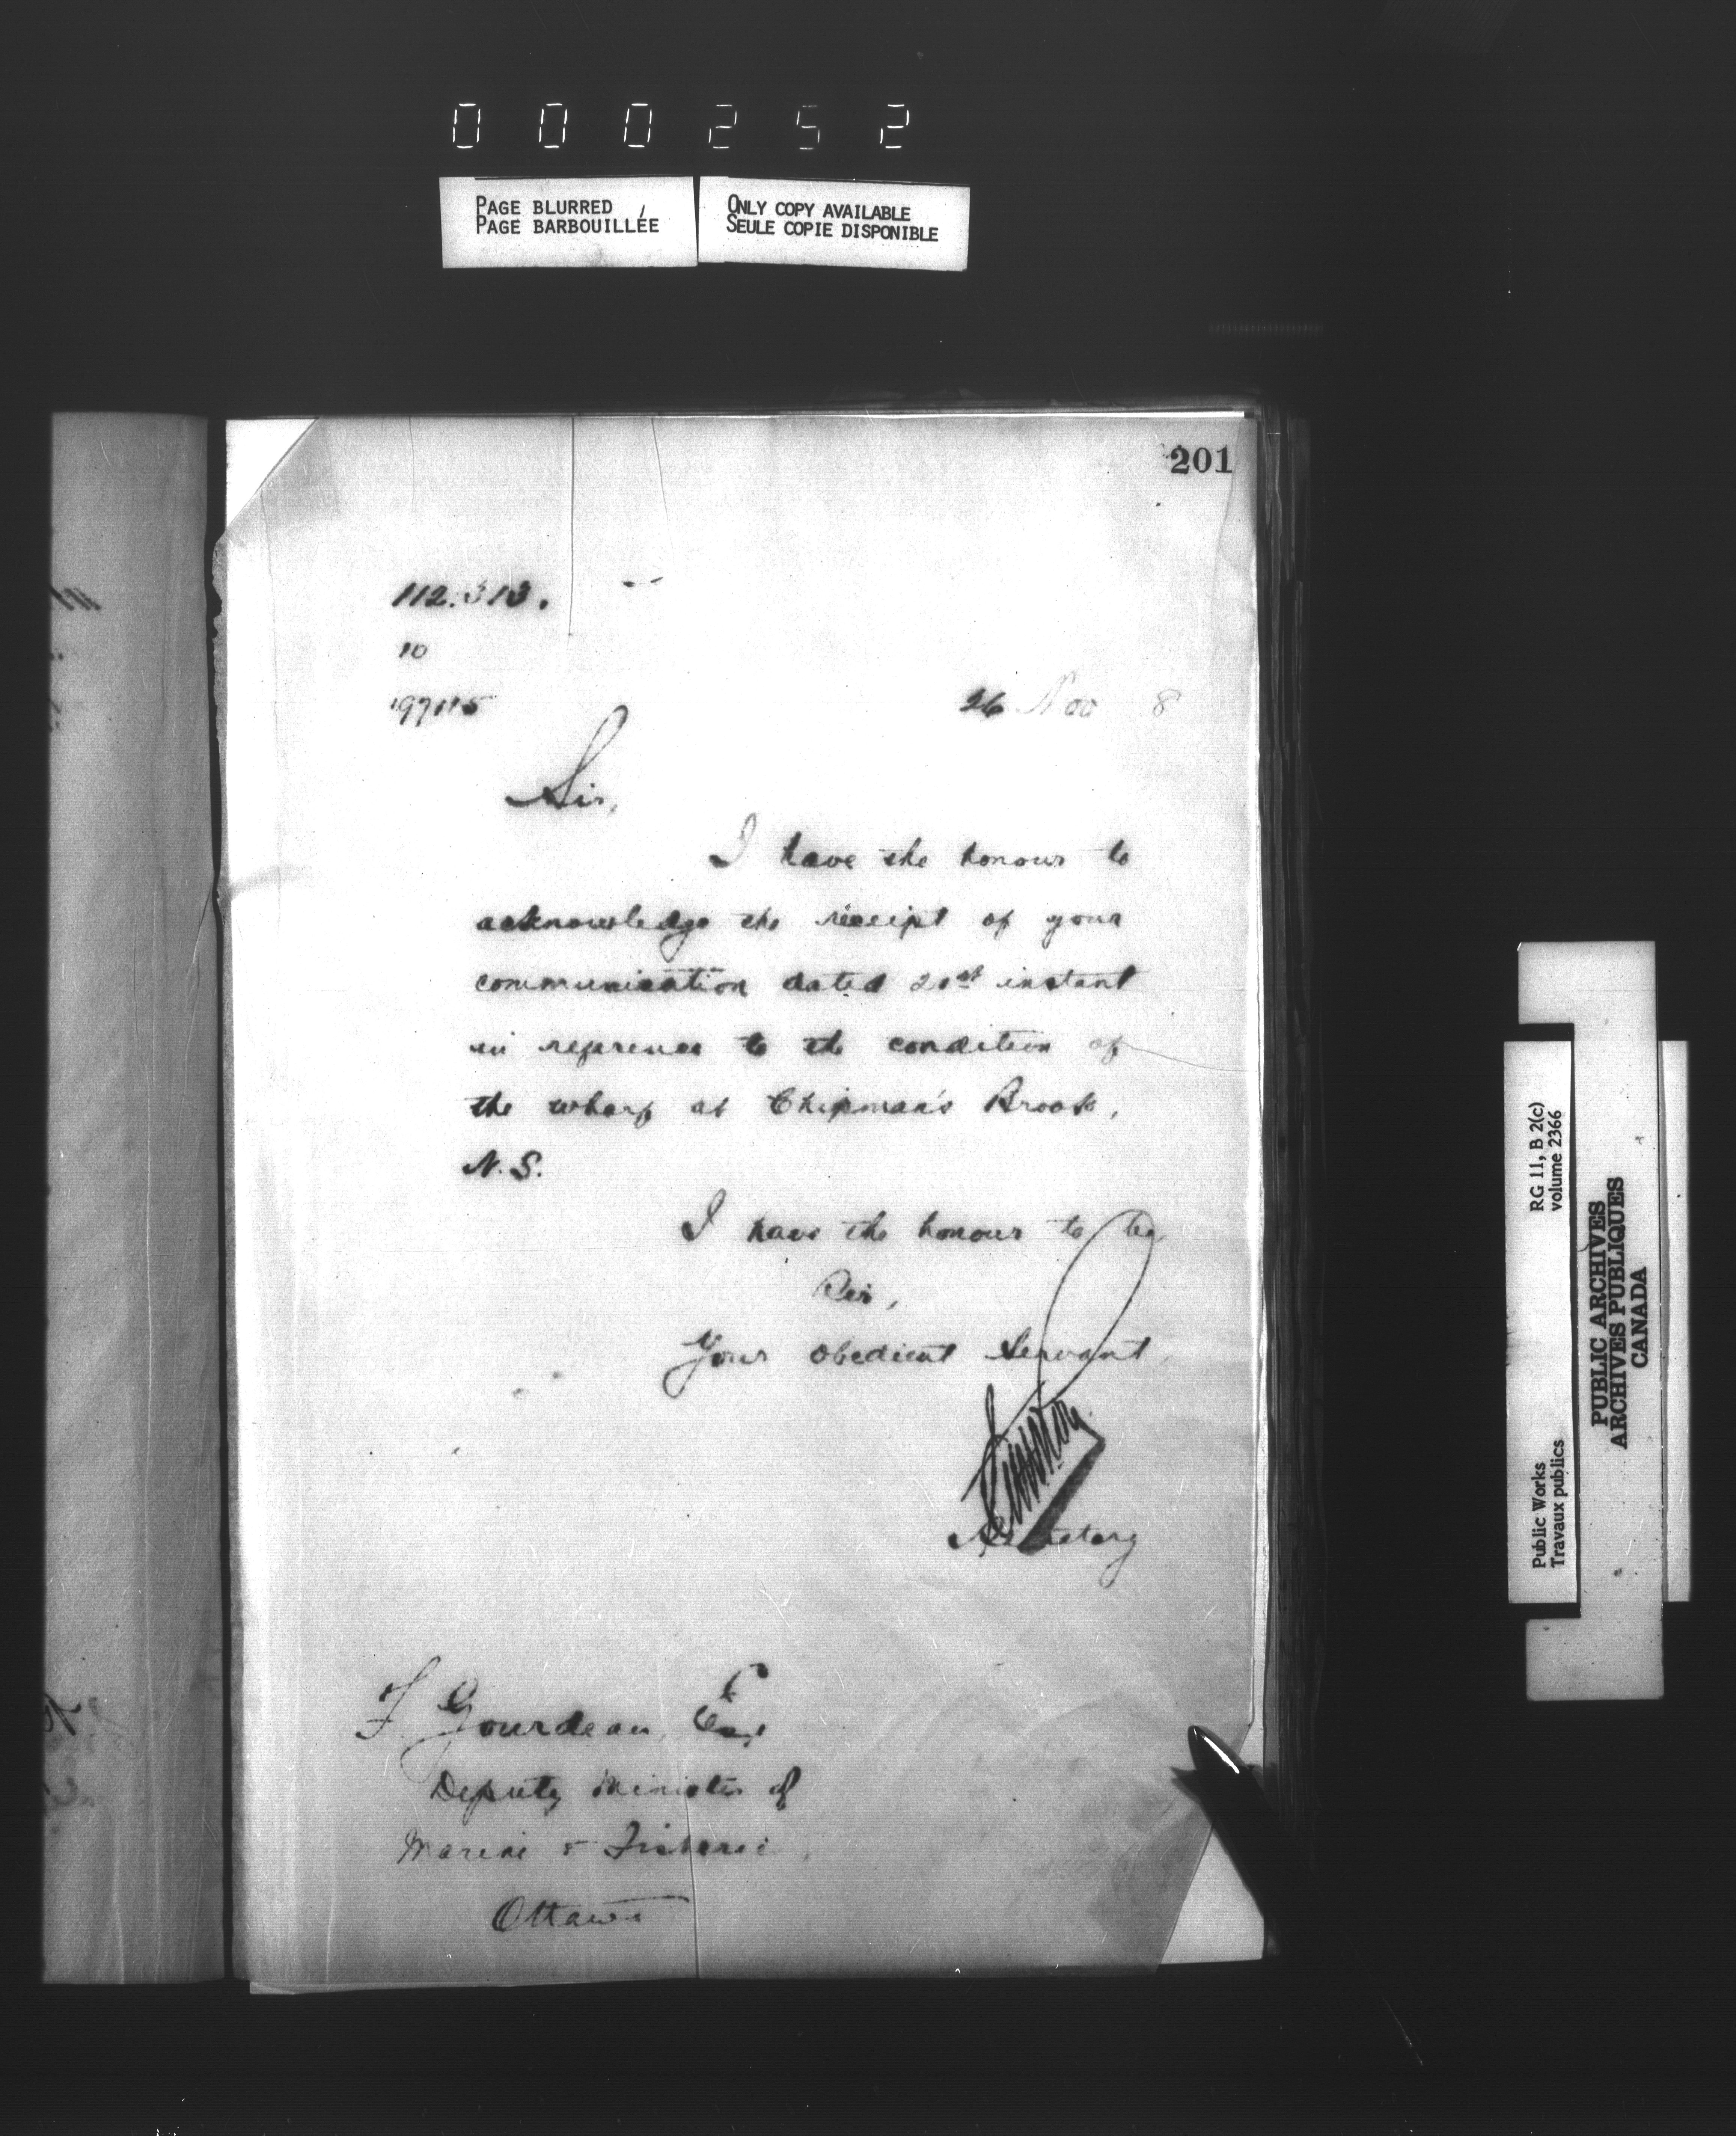 000252
PAGE BLURRED
PAGE BARBOUILLÉE
ONLY COPY AVAILABLE
SEULE COPIE DISPONIBLE
201
112.313.
10
197115
26 Nov 8
Sir,
I have the honour to
acknowledge the receipt of your
communication dated 21st instant
in reference to the condition of
the wharf at Chipman's Brook,
N.S.
I have the honour to be,
Sir,
Your obedient Servant,
Secretary
F. Gourdeau, Esq
Deputy Minister of
Marine & Fisheries
Ottawa
RG 11, B 2(c)
volume 2366
Public Works
Travaux publics
PUBLIC ARCHIVES
ARCHIVES PUBLIQUES
CANADA